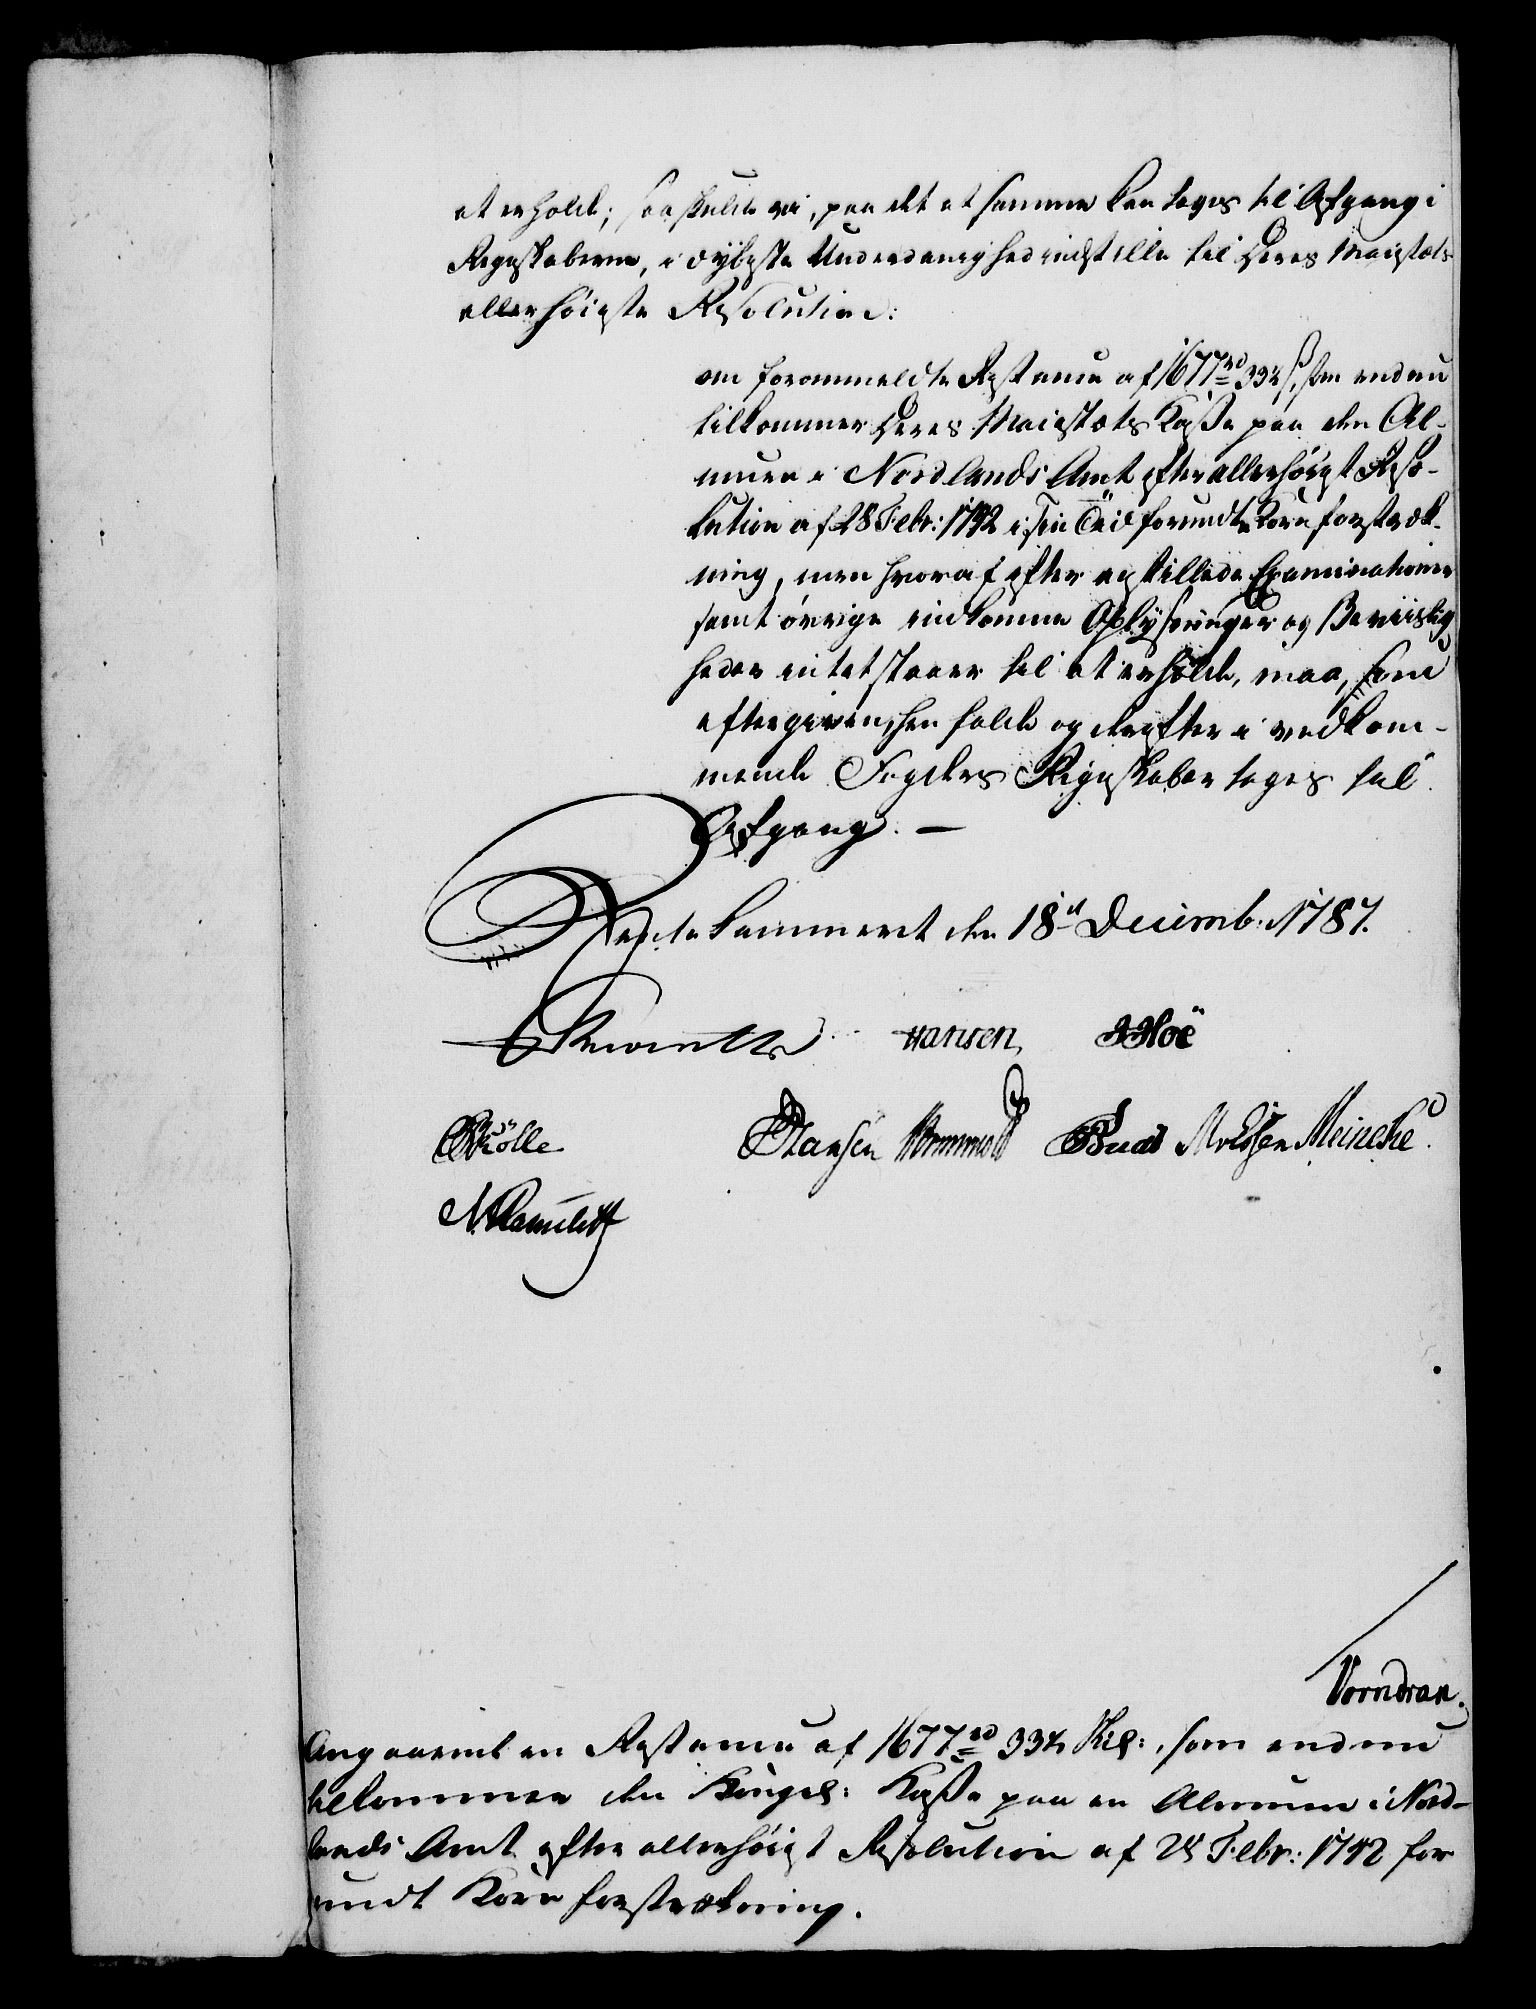 at erholde; saa skulle vi, paa det at samme kan tages til Afgang i
Regnskaberne, i dybeste Underdanighed indstille til Deres Majestæts
allerhöieste Resolution:
om forommeldte Restance af 1677 rd 33 4 ß, som endnu
tilkommer Deres Majestæts Kasse paa den Al-
muen i Nordlands Amt efter allerhöigst Reso-
lution af 28 Febr: 1742 i sin Tiid forundte Korn forstræk-
ning, men hvoraf efter anstillede Examinationer
samt övrige indkomne Oplysninger og Beviislig
heder intet staaer til at erholde, maa, som
eftergiven, henfalde og derefter i vedkom-
mende Fogders Regnskaber tages til
Afgang. —
Rentekammeret den 18de Decemb: 1787.
Hansen
Hoë
Mölle
Hansen Wormskiold Meinche
Vorndran.
Angaaende en Restance af 1677 rd 33 4 Skl:, som endnu
tilkommer den Kongel: Kasse paa en Almuen i Nord-
lands Amt efter allerhöigst Resolution af 28 Febr: 1742 for
undt Korn forstrækning.